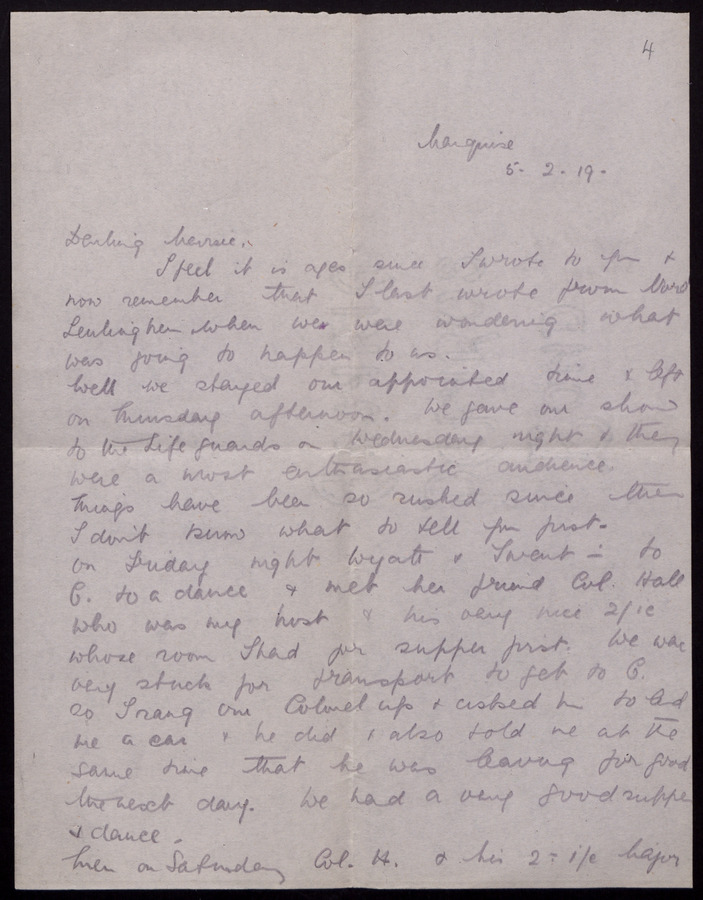 4
Marquise
5 - 2 - 19 -
Darling
I feel it is ages since I wrote to you &
now remember that I last wrote from
when we were wondering what
was going to happen to us.
Well we stayed our appointed time & left
on Thursday afternoon. We gave our show
to the Life guards on Wednesday night & they
were a most enthusiastic audience.
Things have been so rushed since then
I don't know what to tell you first.
On Friday night Wyatt & I went in to
C. to a dance & met her friend Col. Hall
who was my host & his very nice 2/ic
whose room I had for supper first. We was
very stuck for transport to get to C.
so I rang our Colonel up & asked him to
me a car & he did & also told me at the
same time that he was leaving for good
the next day. We had a very good supper
& dance.
Then on Saturday Col. H. & his 2= i/c Major